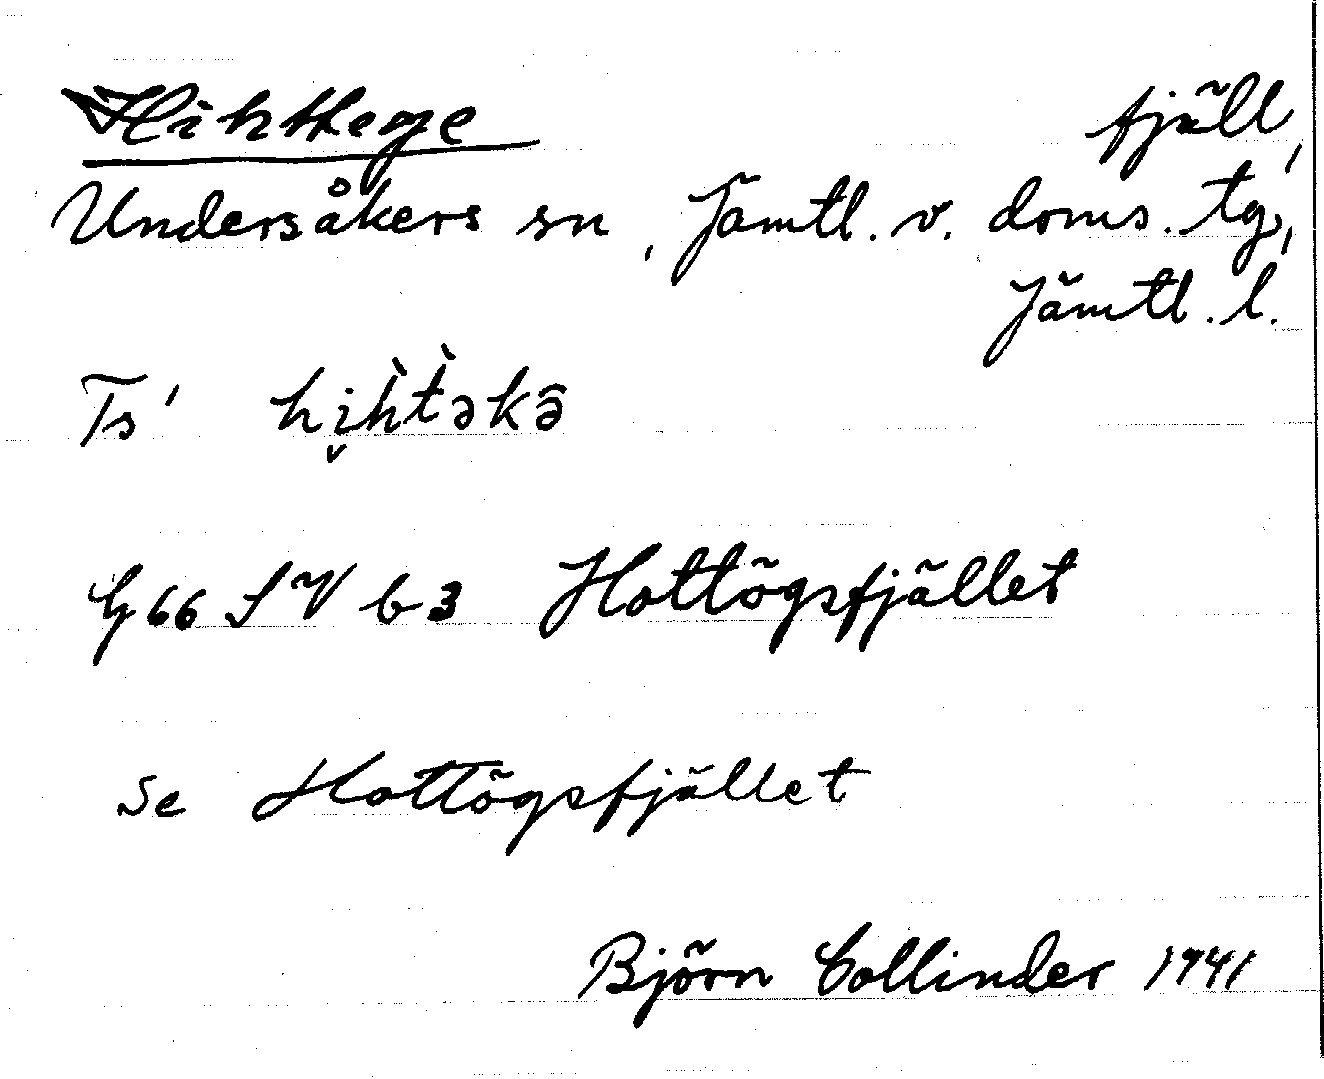 Hihttege fjäll,
Undersåkers sn, Jämtl. v. doms. tg,
Jämtl. l.
Ts' hi̬h̀t̀əkə̂
G 66 SV b 3 Hottögsfjället
se Hottögsfjället
Björn Collinder 1941